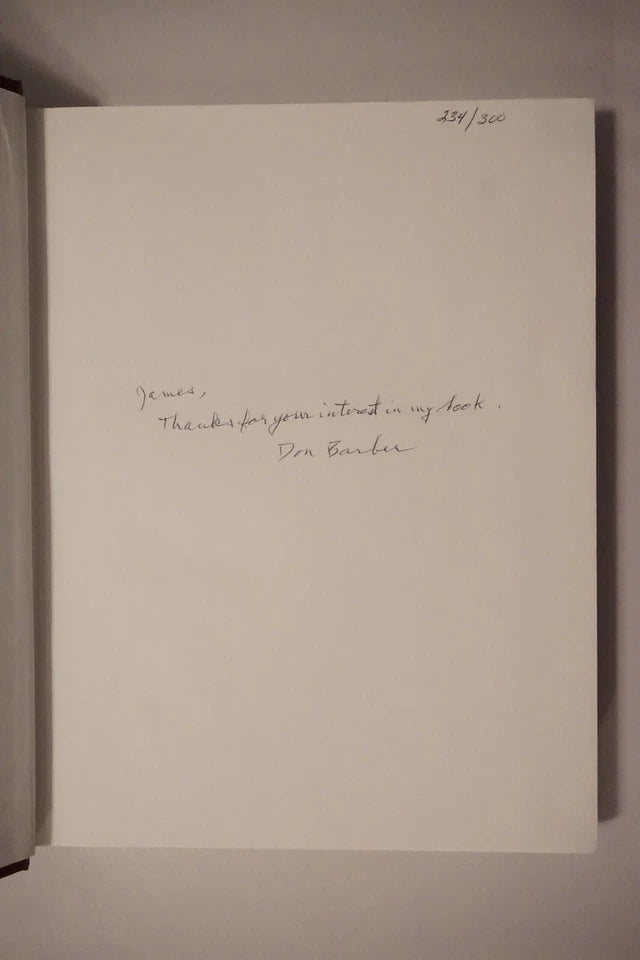 234/300
James,
Thanks for your interest in my book.
Don Barber